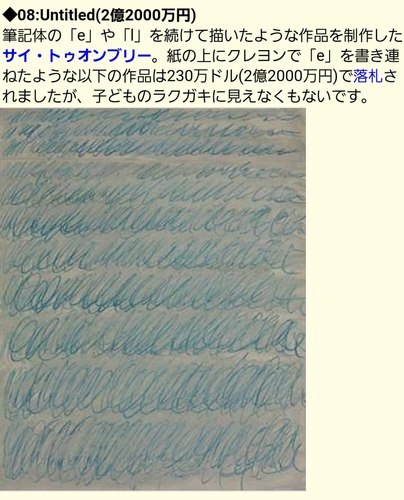 ◆08:Untitled(2億2000万円)
筆記体の「e」や「l」を続けて描いたような作品を制作した
サイ・トゥオンブリー。紙の上にクレヨンで「e」を書き連
ねたような以下の作品は230万ドル(2億2000万円)で落札さ
れましたが、子どものラクガキに見えなくもないです。